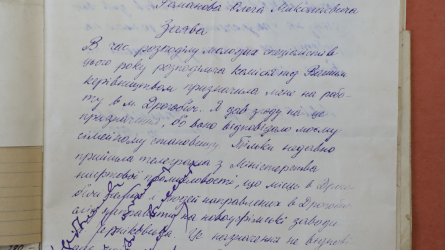 Романова Олега Максимовича
Заява
В час розподілу молодих спеціалістів
цього року розподільча комісія під Вашим
керівництвом призначила мене на робо-
ту в м. Дрогобич. Я дав згоду на це
призначення, бо воно відповідало моєму
сімейному становищу. Тільки недавно
прийшла телеграма з Міністерства
нафтової промисловості, що місць в Дрого-
бичі немає і людей направлених в Дрогобич
на новоуфімські заводи
Це призначення не відпов-